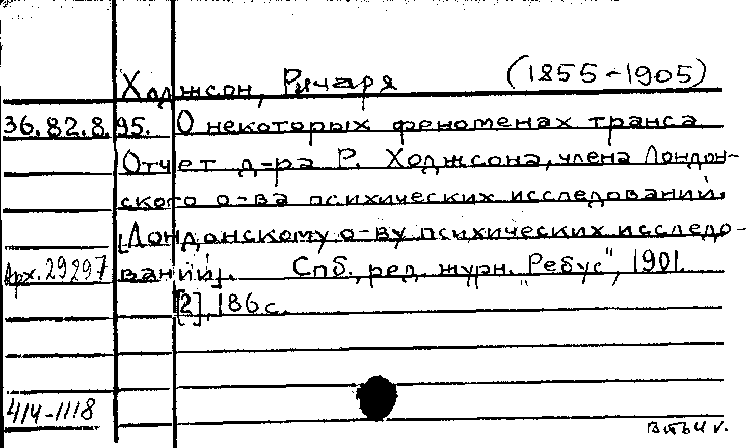 Ходжсон, Ричард (1855-1905)
36.82.8.95. О некоторых феноменах транса
Отчет д-ра Р. Ходжсона, члена Лондон-
ского о-ва психических исследований,
[Лондонскому о-ву психических исследо-
Арх. 29297 ваний]. Спб., ред. журн. "Ребус", 1901.
[2], 186 с.
414-1118